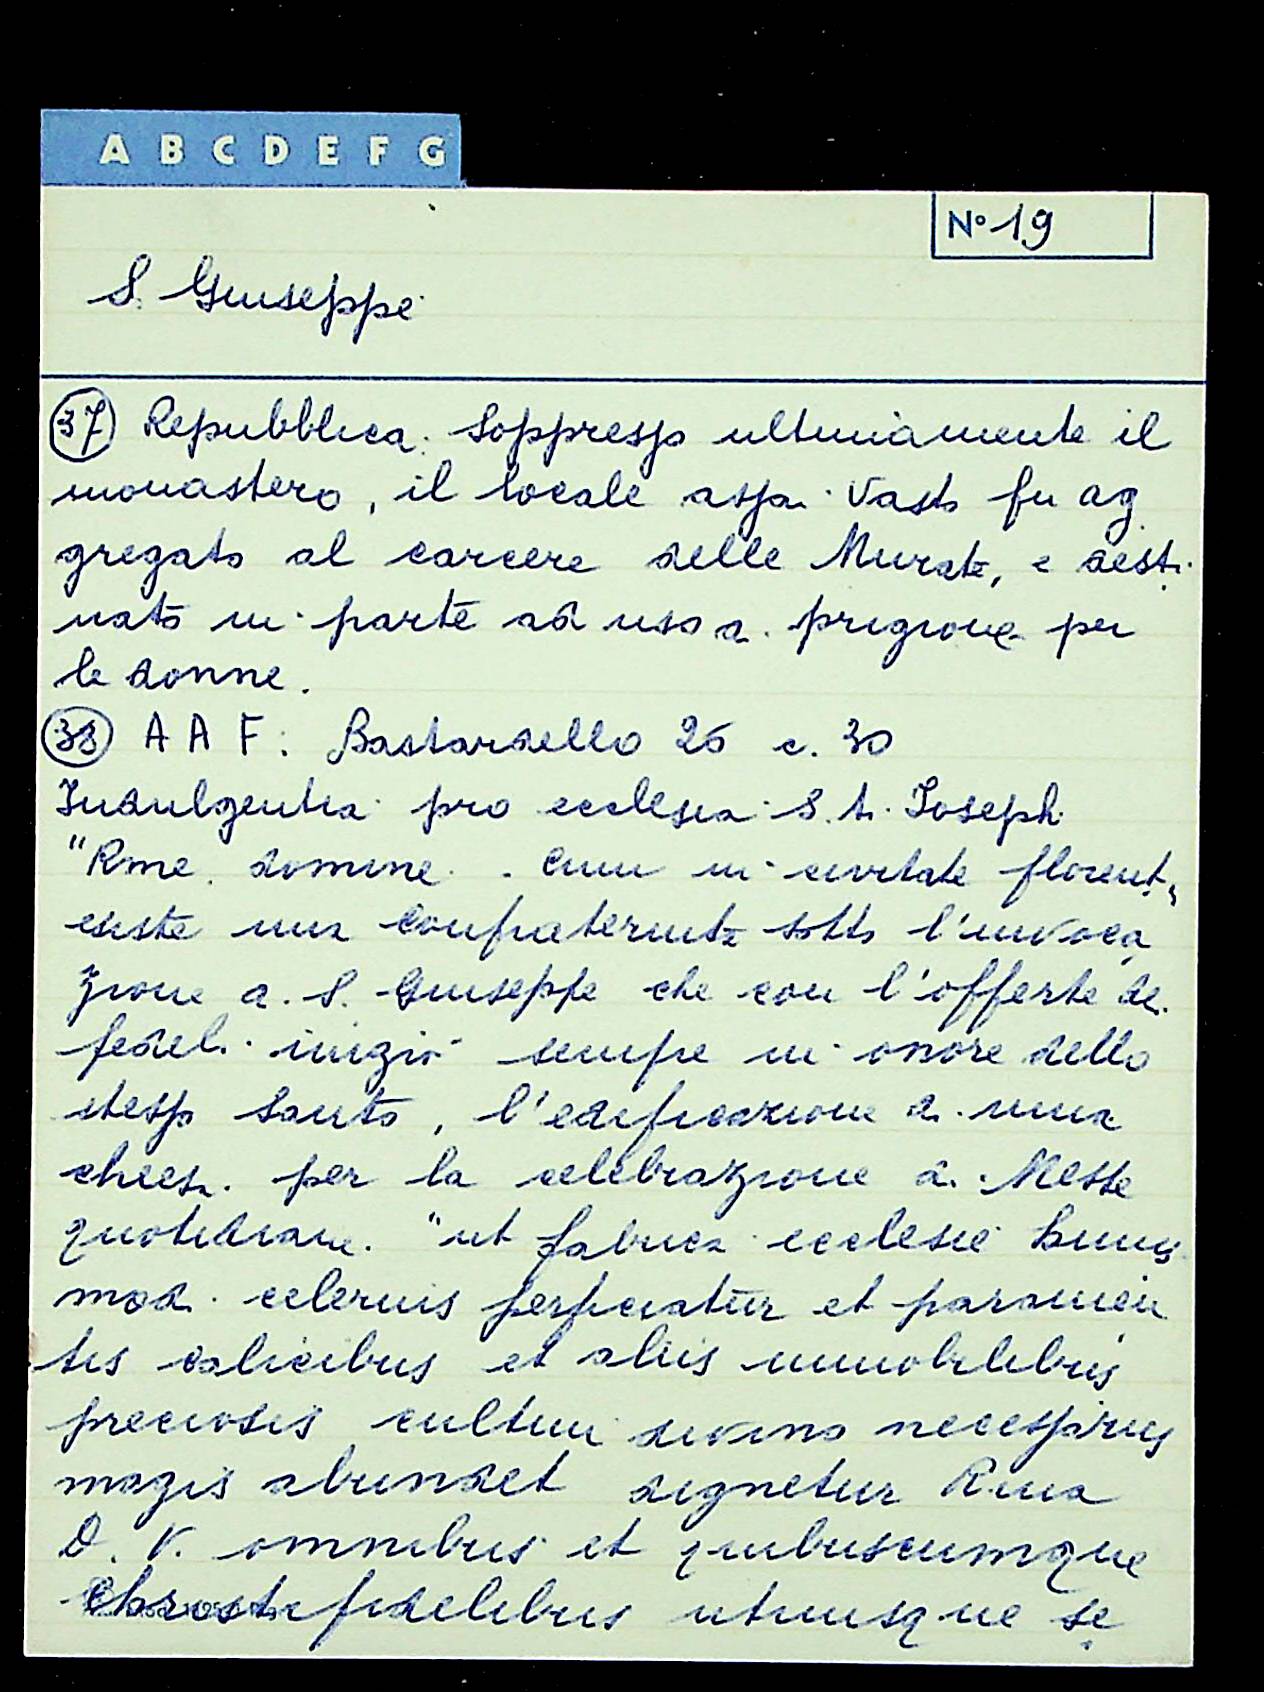 A B C D E F G
Nº 19
S. Giuseppe
37 Repubblica. Soppresso ultimamente il
monastero, il locale assai vasto fu ag
gregato al carcere delle Murate, e desti
nato in parte ad uso di prigione per
le donne.
38 A A F: Bastardello 26 c. 30
Indulgentia pro ecclesia S.ti Joseph
"Rme domine. Cum in civitate florent,
esiste una confraternita sotto l'invoca
zione di S. Giuseppe che con l'offerte dei
fedeli iniziò sempre in onore dello
stesso Santo, l'edificazione di una
chiesa per la celebrazione di Messe
quotidiane. "ut fabrica ecclesie huius
modi celerius perficiatur et paramen
tis calicibus et aliis immobilibus
preciosis cultui divino necessariis
magis abundet dignetur Rma
D. V. omnibus et quibuscumque
Christi fidelibus utriusque se